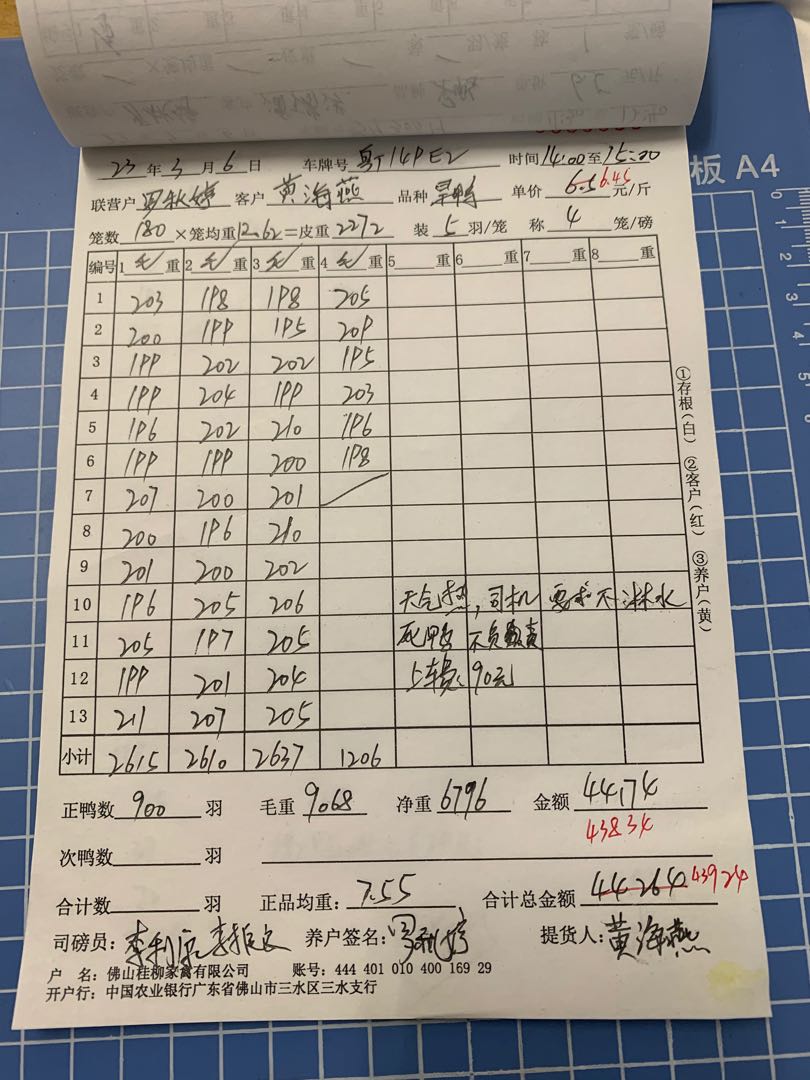 23 年 3 月 6 日 车牌号 粤T14PE2 时间 14:00 至 15:00
联营户 罗秋婷 客户 黄海燕 品种 旱鸭 单价 6.5 6.45 元/斤
笼数 180 ×笼均重 12.62 =皮重 2272 装 5 羽/笼 称 4 笼/磅
编号 1 毛 重 2 毛 重 3 毛 重 4 毛 重 5 重 6 重 7 重 8 重
1 203 198 198 205
2 200 199 195 209
3 199 202 202 195
4 199 204 199 203
5 196 202 210 196
6 199 199 200 198
7 207 200 201
8 200 196 210
9 201 200 202
10 196 205 206 天气热,司机要求不淋水
11 205 197 205 死鸭不负责
12 199 201 204 上车费:90元
13 211 207 205
小计 2615 2610 2637 1206
正鸭数 900 羽 毛重 9068 净重 6796 金额 44174
43834
次鸭数 羽
合计数 羽 正品均重: 7.55 合计总金额 44264 43924
司磅员: 养户签名: 提货人: 黄海燕
户 名: 佛山桂柳家禽有限公司 账号: 444 401 010 400 169 29
开户行: 中国农业银行广东省佛山市三水区三水支行
①存根(白) ②客户(红) ③养户(黄)
板 A4
0
1
2
3
4
5